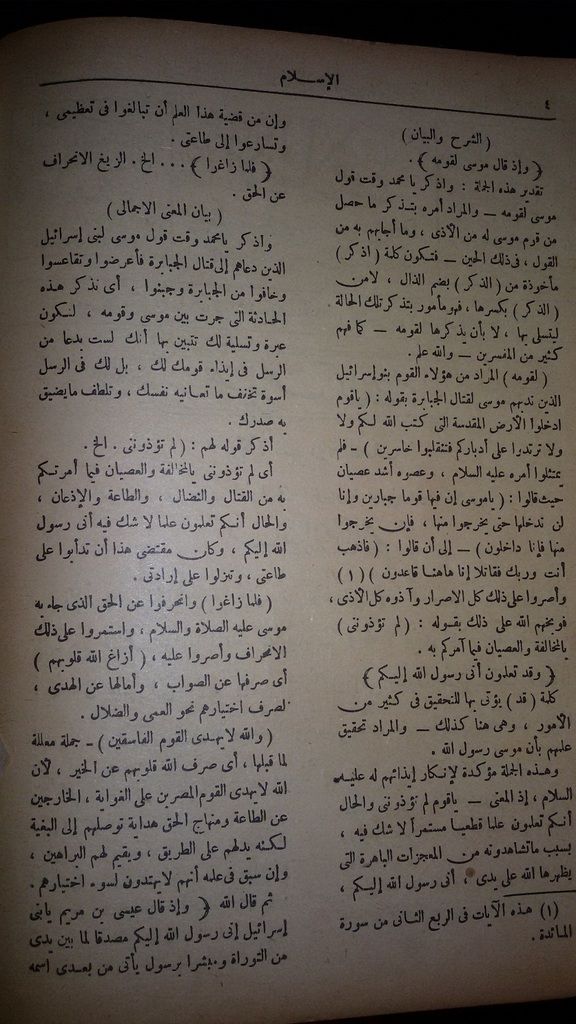 الإسلام
٤
( الشرح والبيان )
﴿ وإذ قال موسى لقومه ﴾ .
تقدير هذه الجملة : واذكر يا محمد وقت قول
موسى لقومه — والمراد أمره بتذكر ما حصل
من قوم موسى له من الأذى ، وما أجابهم به من
القول ، فى ذلك الحين — فتكون كلمة ( اذكر )
مأخوذة من ( الذكر ) بضم الذال ، لا من
( الذكر ) بكسرها ، فهو مأمور بتذكر تلك الحالة
ليتسلى بها ، لا بأن يذكرها لقومه — كما فهم
كثير من المفسرين — والله علم .
( لقومه ) المراد من هؤلاء القوم بنو إسرائيل
الذين ندبهم موسى لقتال الجبابرة بقوله : ( ياقوم
ادخلوا الأرض المقدسة التى كتب الله لكم ولا
ولا ترتدوا على أدباركم فتنقلبوا خاسرين ) — فلم
يمتثلوا أمره عليه السلام ، وعصوه أشد عصيان
حيث قالوا : ( ياموسى إن فيها قوما جبارين وإنا
لن ندخلها حتى يخرجوا منها ، فإن يخرجوا
منها فإنا داخلون ) — إلى أن قالوا : ( فاذهب
أنت وربك فقاتلا إنا هاهنا قاعدون ) ( ١ )
وأصروا على ذلك كل الاصرار وآذوه كل الأذى ،
فوبخهم الله على ذلك بقوله : ( لم تؤذوننى )
بالمخالفة والعصيان فيما آمركم به .
﴿ وقد تعلمون أنى رسول الله إليكم ﴾
كلمة ( قد ) يؤتى بها للتحقيق فى كثير من
الأمور ، وهى هنا كذلك — والمراد تحقيق
علمهم بأن موسى رسول الله .
وهذه الجملة مؤكدة لإنكار إيذائهم له عليه
السلام ، إذ المعنى — ياقوم لم تؤذوننى والحال
أنكم تعلمون علما قطعيا مستمراً لا شك فيه ،
بسبب ماتشاهدونه من المعجزات الباهرة التى
يظهرها الله على يدى ، أنى رسول الله إليكم ،
( ١ ) هذه الآيات فى الربع الثانى من سورة
المائدة .
وإن من قضية هذا العلم أن تبالغوا فى تعظيمى ،
وتسارعوا إلى طاعتى .
﴿ فلما زاغوا ﴾ . . . الخ . الزيغ الانحراف
عن الحق .
( بيان المعنى الاجمالى )
واذكر يامحمد وقت قول موسى لبنى إسرائيل
الذين دعاهم إلى قتال الجبابرة فأعرضوا وتقاعسوا
وخافوا من الجبابرة وجبنوا ، أى نذكر هذه
الحادثة التى جرت بين موسى وقومه ، لتكون
عبرة وتسلية لك تتبين بها أنك لست بدعا من
الرسل فى إيذاء قومك لك ، بل لك فى الرسل
أسوة تخفف ما تعانيه نفسك ، وتلطف مايضيق
به صدرك .
أذكر قوله لهم : ( لم تؤذوننى . الخ .
أى لم تؤذوننى بالمخالفة والعصيان فيما أمرتكم
به من القتال والنضال ، والطاعة والإذعان ،
والحال أنكم تعلمون علما لا شك فيه أنى رسول
الله إليكم ، وكان مقتضى هذا أن تدأبوا على
طاعتى ، وتنزلوا على إرادتى .
( فلما زاغوا ) وانحرفوا عن الحق الذى جاء به
موسى عليه الصلاة والسلام ، واستمروا على ذلك
الانحراف وأصروا عليه ، ( أزاغ الله قلوبهم )
أى صرفها عن الصواب ، وأمالها عن الهدى ،
لصرف اختيارهم نحو العمى والضلال .
( والله لايهدى القوم الفاسقين ) — جملة معللة
لما قبلها ، أى صرف الله قلوبهم عن الخير ، لأن
الله لايهدى القوم المصرين على الغواية ، الخارجين
عن الطاعة ومنهاج الحق هداية توصلهم إلى البغية
لكنه يدلهم على الطريق ، ويقيم لهم البراهين ،
وإن سبق فى علمه أنهم لايهتدون لسوء اختيارهم .
ثم قال الله ﴿ وإذ قال عيسى بن مريم يابنى
إسرائيل إنى رسول الله إليكم مصدقا لما بين يدى
من التوراة ومبشرا برسول يأتى من بعدى اسمه